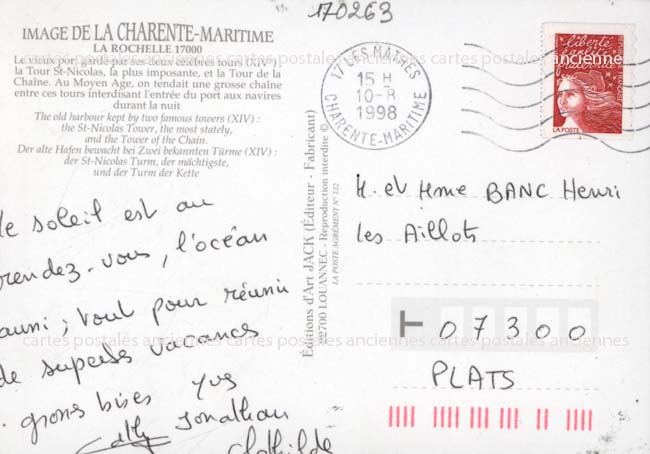 170263
IMAGE DE LA CHARENTE-MARITIME
LA ROCHELLE 17000
Le vieux port gardé par ses deux célèbres tours (XIV) :
la Tour St-Nicolas, la plus imposante, et la Tour de la
Chaîne. Au Moyen Age, on tendait une grosse chaîne
entre ces tours interdisant l'entrée du port aux navires
durant la nuit
The old harbour kept by two famous towers (XIV) :
the St-Nicolas Tower, the most stately,
and the Tower of the Chain.
Der alte Hafen bewacht bei Zwei bekannten Türme (XIV) :
der St-Nicolas Turm, der mächtigste,
und der Turm der Kette
le soleil est au
rendez-vous, l'océan
aussi ; tout pour réunir
de superbes vacances
grosses bises Yves
Cathy Jonathan
Clothilde
Éditions d'Art JACK (Éditeur - Fabricant)
LOUANNEC - Reproduction interdite ©
LA POSTE AGRÉMENT N° 132
17 LES MATHES
15 H
10-8
1998
CHARENTE-MARITIME
liberté
égalité
fraternité
LA POSTE
M. et Mme BANC Henri
Les Aillots
07300
PLATS
cartes postales anciennes cartes postales anciennes cartes postales anciennes